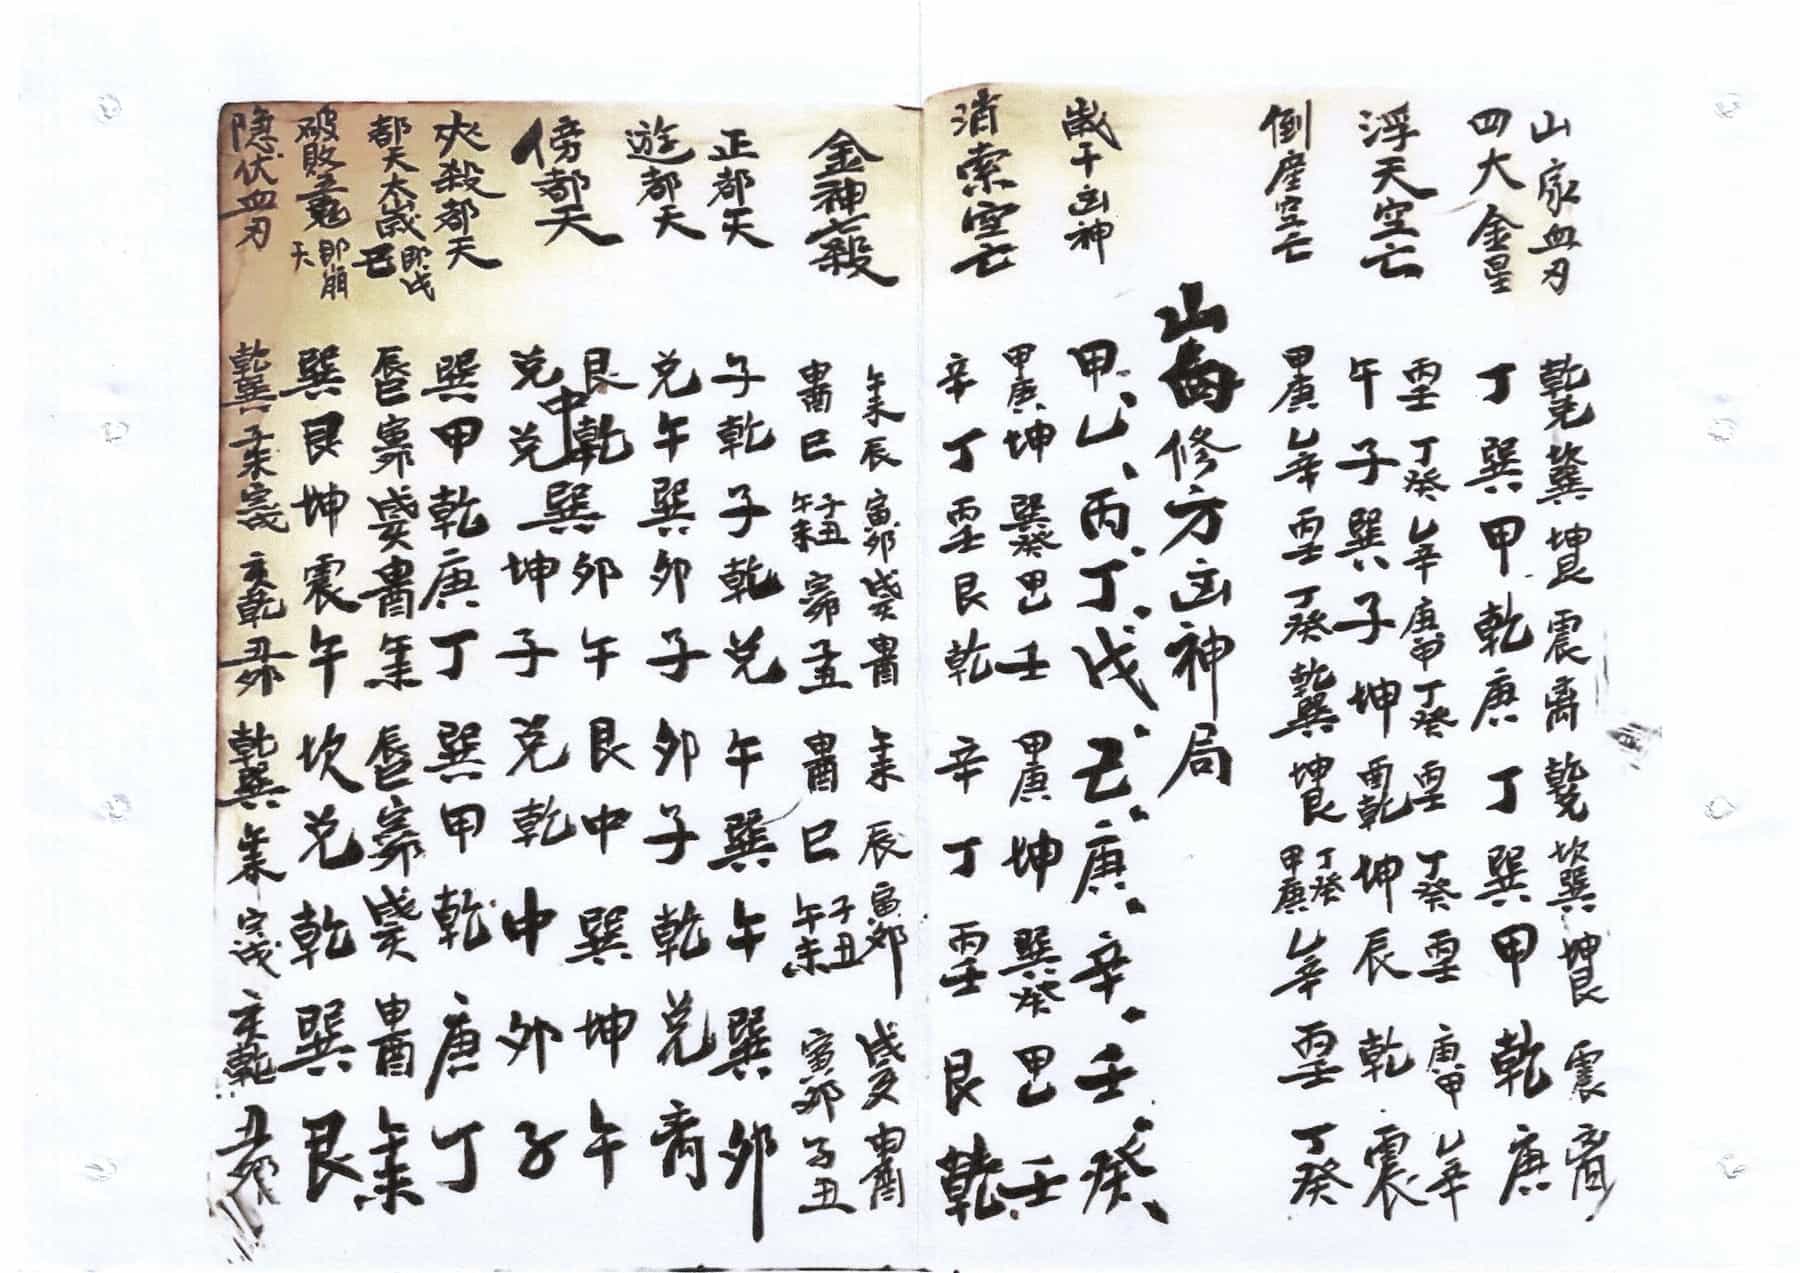 山家血刃 乾兌 坎巽 坤艮 震 离 乾兌 坎巽 坤艮 震 离
四大金星 丁 巽 甲 乾 庚 丁 巽 甲 乾 庚
浮天空亡
丙壬 丁癸 乙辛 庚甲 丁癸 丙壬 丁癸 丙壬 庚甲 乙辛
午 子 巽 子 坤 酉乾 坤 辰 乾 震
倒産空亡 甲庚 乙辛 丙壬 丁癸 乾巽 坤艮 丁癸甲庚 乙辛 丙壬 丁癸
山修方凶神局
歲干凶神 甲、乙、丙、丁、戊、己、庚、辛、壬、癸、
消索空亡
甲庚 坤 巽癸 甲 壬 甲庚 坤 巽癸 甲 壬
辛 丁 丙壬 艮 乾 辛 丁 丙壬 艮 乾
金神七殺
午未 辰 寅卯 戌亥 申酉 午未 辰 寅卯 戌亥 申酉
申酉 巳 子丑午未 寅卯 子丑 申酉 巳 子丑午未 寅卯 子丑
正都天 子 乾 子 乾 兌 午 巽 午 巽 卯
遊都天 兌 午 巽 卯 子 卯 子 乾 兌 离
傍都天
艮 乾 巽 卯 午 艮 中 巽 坤 午
兌 中 兌 坤 子 兌 乾 中 卯 子
夾殺都天 巽 甲 乾 庚 丁 巽 甲 乾 庚 丁
都天太歲即戊己 辰巳 寅卯 戌亥 申酉 午未 辰巳 寅卯 戌亥 申酉 午未
破敗五鬼即崩天 巽 艮 坤 震 午 坎 兌 乾 巽 艮
隐伏血刃 乾巽 子未 寅戌 亥乾 丑卯 乾巽 午未 寅戌 亥乾 丑卯